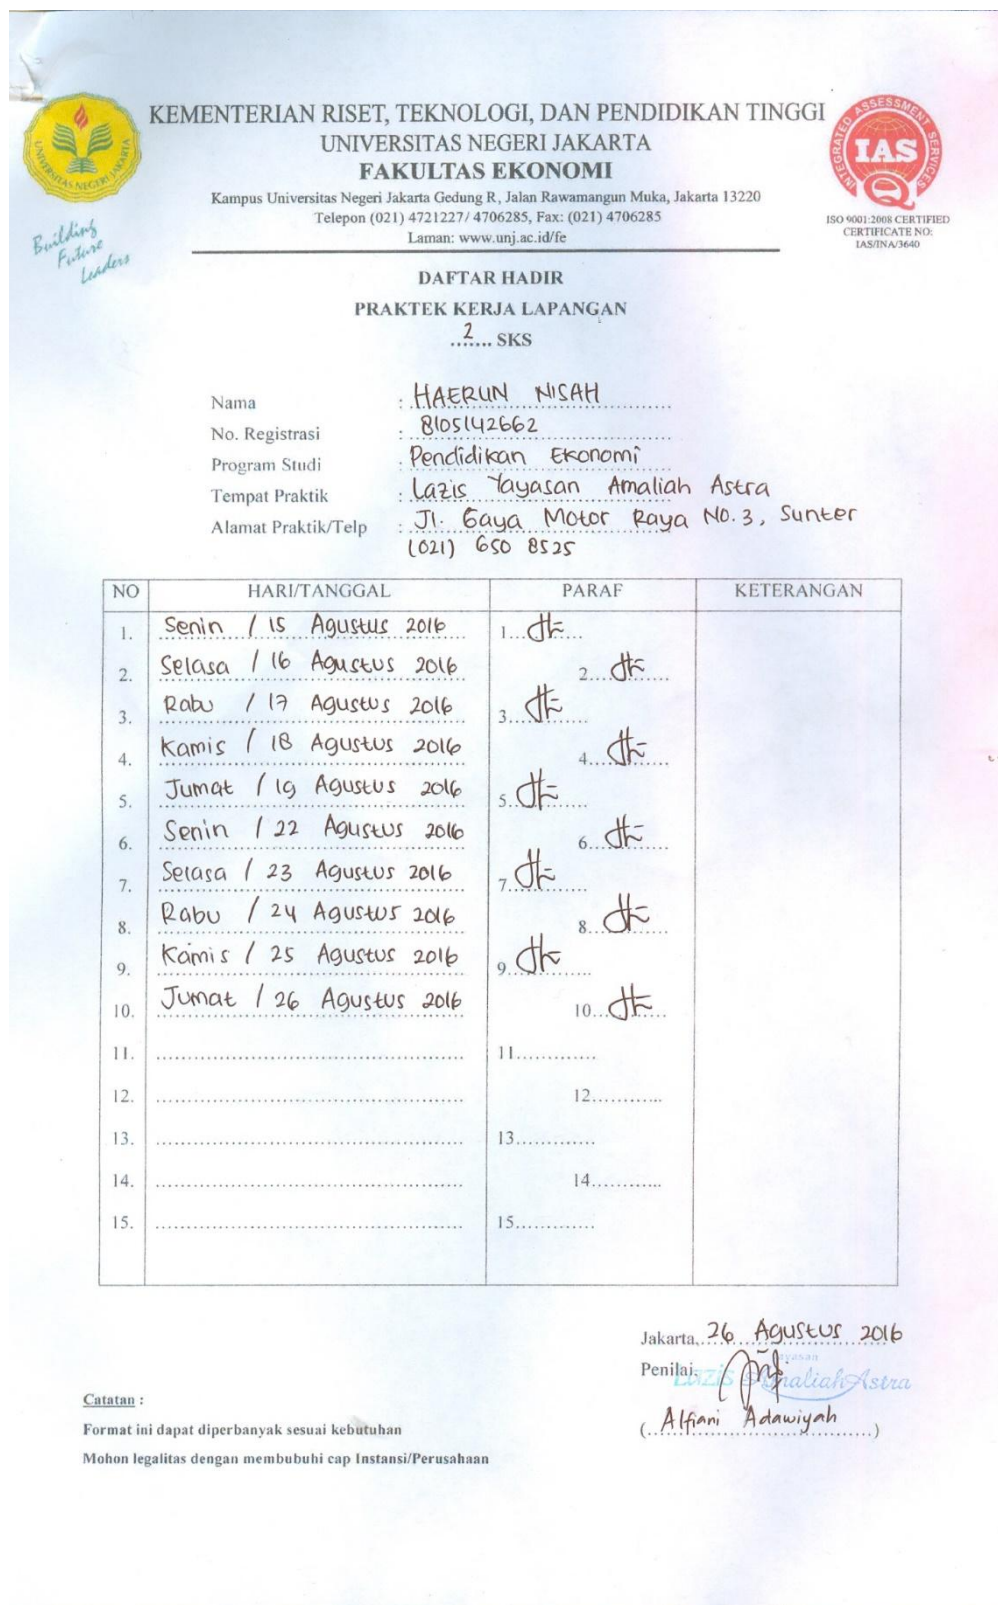 KEMENTERIAN RISET, TEKNOLOGI, DAN PENDIDIKAN TINGGI
UNIVERSITAS NEGERI JAKARTA
FAKULTAS EKONOMI
Kampus Universitas Negeri Jakarta Gedung R, Jalan Rawamangun Muka, Jakarta 13220
Telepon (021) 4721227/ 4706285, Fax: (021) 4706285
Laman: www.unj.ac.id/fe
UNIVERSITAS NEGERI JAKARTA
Building
Future
Leaders
INTEGRATED ASSESSMENT SERVICES
IAS
ISO 9001:2008 CERTIFIED
CERTIFICATE NO:
IAS/INA/3640
DAFTAR HADIR
PRAKTEK KERJA LAPANGAN
...2... SKS
Nama : HAERUN NISAH
No. Registrasi : 8105142662
Program Studi : Pendidikan Ekonomi
Tempat Praktik : Lazis Yayasan Amaliah Astra
Alamat Praktik/Telp : Jl. Gaya Motor Raya NO.3, Sunter
(021) 650 8525
NO HARI/TANGGAL PARAF KETERANGAN
1. Senin / 15 Agustus 2016 1...
2. Selasa / 16 Agustus 2016 2...
3. Rabu / 17 Agustus 2016 3...
4. Kamis / 18 Agustus 2016 4...
5. Jumat / 19 Agustus 2016 5...
6. Senin / 22 Agustus 2016 6...
7. Selasa / 23 Agustus 2016 7...
8. Rabu / 24 Agustus 2016 8...
9. Kamis / 25 Agustus 2016 9...
10. Jumat / 26 Agustus 2016 10...
11. 11.............
12. 12............
13. 13.............
14. 14............
15. 15.............
Jakarta, 26 Agustus 2016
Penilai,
Yayasan
Lazis Amaliah Astra
(Alfiani Adawiyah)
Catatan :
Format ini dapat diperbanyak sesuai kebutuhan
Mohon legalitas dengan membubuhi cap Instansi/Perusahaan